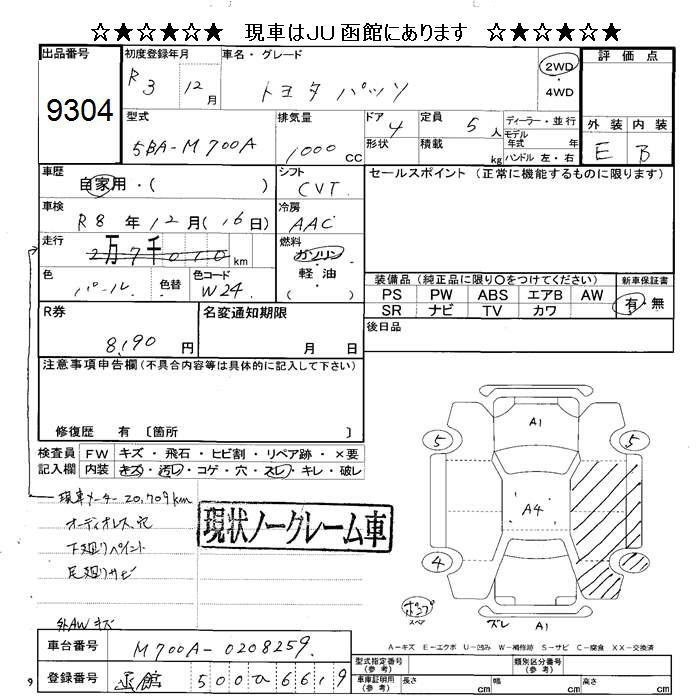 ☆★☆★☆★ 現車はJU函館にあります ☆★☆★☆★
出品番号
9304
初度登録年月
R3 12月
車名・グレード
トヨタ パッソ
2WD
・
4WD
評価点
外装 内装
E B
型式
5BA-M700A
排気量
1000 CC
ドア
4
形状
定員
5人
積載
kg
ディーラー・並行
モデル
年式 年
ハンドル 左・右
車歴
自家用・( )
シフト
CVT
セールスポイント (正常に機能するものに限ります)
車検
R8年12月(16日)
冷房
AAC
走行
2万7千010km
燃料
ガソリン
・
軽油
( )
色
パール
色替
色コード
W24
装備品 (純正品に限り〇をつけてください)
PS PW ABS エアB AW
SR ナビ TV カワ
新車保証書
有・無
R券
8,190円
名変通知期限
月 日
後日品
注意事項申告欄 (不具合内容等は具体的に記入して下さい)
修復歴 有 〔箇所 〕
検査員
記入欄
FW キズ・飛石・ヒビ割・リペア跡・×要
内装 キズ・汚レ・コゲ・穴・スレ・キレ・破レ
現車メーター20,709km
オーディオレス穴
下廻りペイント
足廻りサビ
外AWキズ
現状ノークレーム車
A1
5 5
A4
4
ポンプ
スペア
ズレ A1
A-キズ E-エクボ U-凹み W-補修跡 S-サビ C-腐食 XX-交換済
車台番号
M700A-0208259
登録番号
函館 500 6619
型式指定番号
(参考)
類別区分番号
(参考)
車庫証明用
(参考)
長さ cm
幅 cm
高さ cm
9